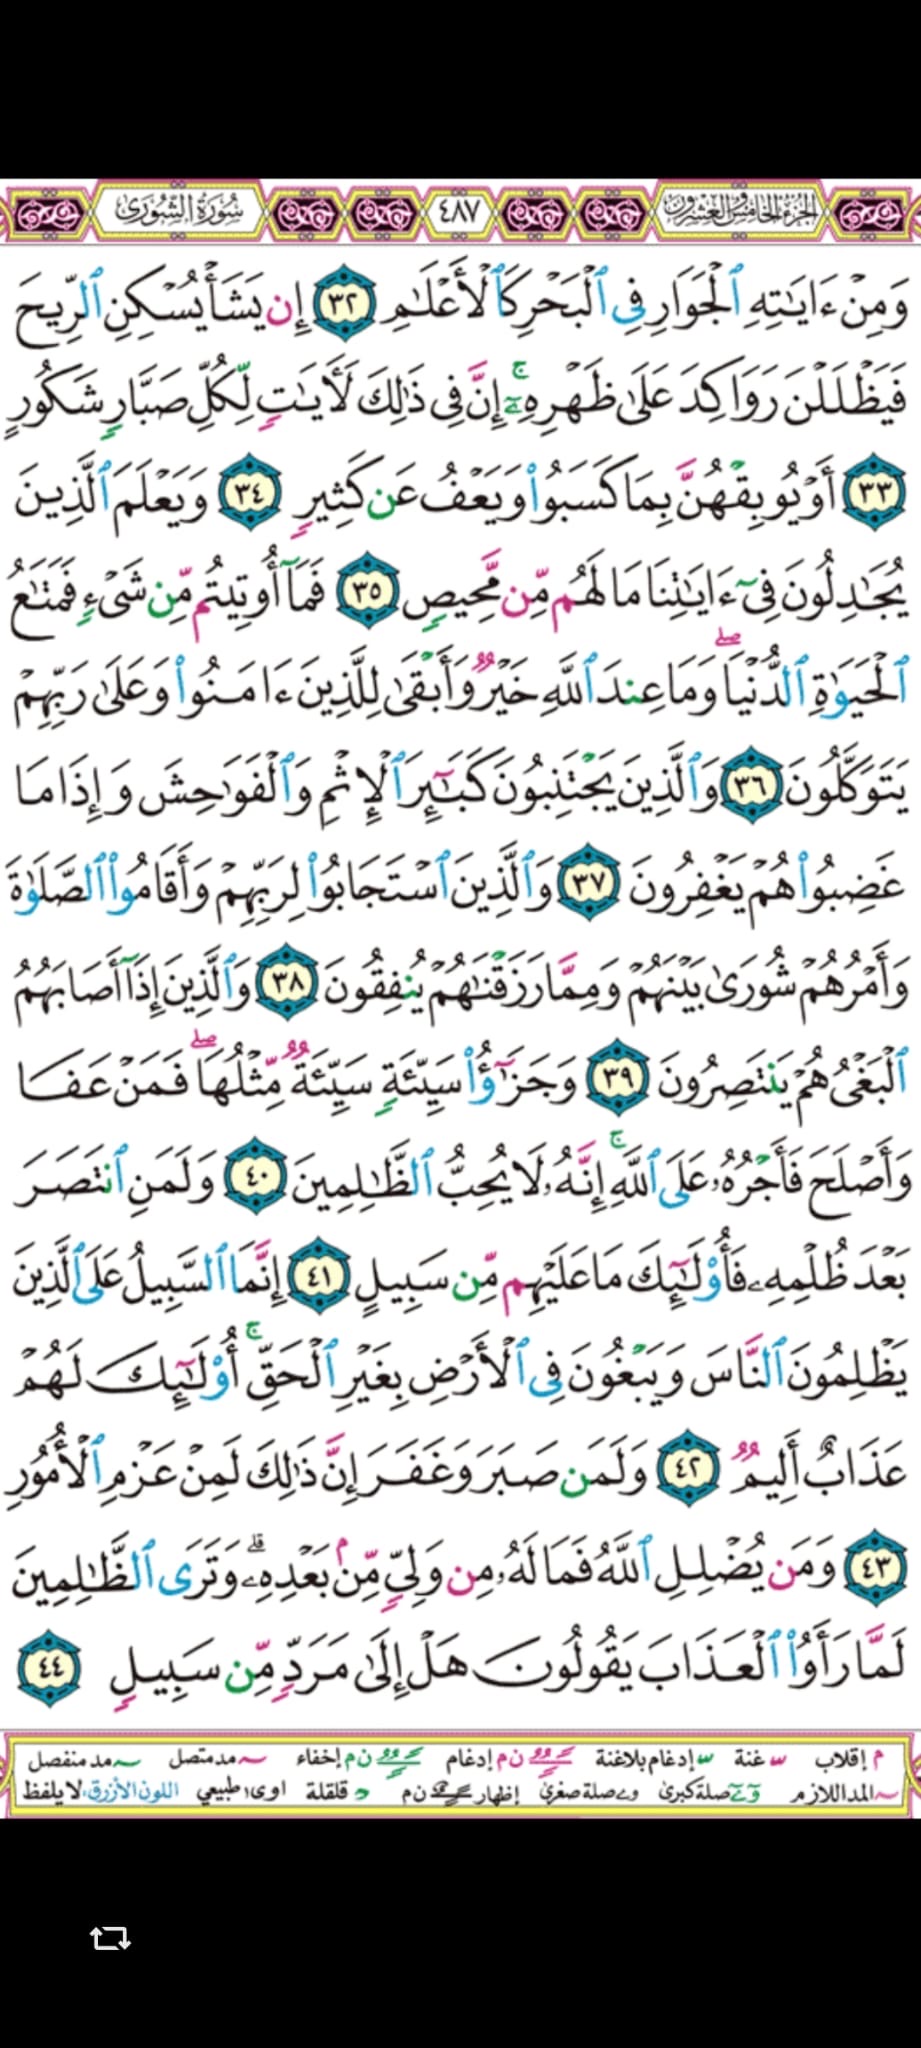 الجزء الخامس والعشرون
٤٨٧
سورة الشورى
وَمِنْ ءَايَٰتِهِ ٱلْجَوَارِ فِى ٱلْبَحْرِ كَٱلْأَعْلَٰمِ ٣٢ إِن يَشَأْ يُسْكِنِ ٱلرِّيحَ
فَيَظْلَلْنَ رَوَاكِدَ عَلَىٰ ظَهْرِهِۦٓ ۚ إِنَّ فِى ذَٰلِكَ لَءَايَٰتٍ لِّكُلِّ صَبَّارٍ شَكُورٍ
٣٣ أَوْ يُوبِقْهُنَّ بِمَا كَسَبُوا۟ وَيَعْفُ عَن كَثِيرٍ ٣٤ وَيَعْلَمَ ٱلَّذِينَ
يُجَٰدِلُونَ فِىٓ ءَايَٰتِنَا مَا لَهُم مِّن مَّحِيصٍ ٣٥ فَمَآ أُوتِيتُم مِّن شَىْءٍ فَمَتَٰعُ
ٱلْحَيَوٰةِ ٱلدُّنْيَا ۖ وَمَا عِندَ ٱللَّهِ خَيْرٌ وَأَبْقَىٰ لِلَّذِينَ ءَامَنُوا۟ وَعَلَىٰ رَبِّهِمْ
يَتَوَكَّلُونَ ٣٦ وَٱلَّذِينَ يَجْتَنِبُونَ كَبَٰٓئِرَ ٱلْإِثْمِ وَٱلْفَوَٰحِشَ وَإِذَا مَا
غَضِبُوا۟ هُمْ يَغْفِرُونَ ٣٧ وَٱلَّذِينَ ٱسْتَجَابُوا۟ لِرَبِّهِمْ وَأَقَامُوا۟ ٱلصَّلَوٰةَ
وَأَمْرُهُمْ شُورَىٰ بَيْنَهُمْ وَمِمَّا رَزَقْنَٰهُمْ يُنفِقُونَ ٣٨ وَٱلَّذِينَ إِذَآ أَصَابَهُمُ
ٱلْبَغْىُ هُمْ يَنتَصِرُونَ ٣٩ وَجَزَٰٓؤُا۟ سَيِّئَةٍ سَيِّئَةٌ مِّثْلُهَا ۖ فَمَنْ عَفَا
وَأَصْلَحَ فَأَجْرُهُۥ عَلَى ٱللَّهِ ۚ إِنَّهُۥ لَا يُحِبُّ ٱلظَّٰلِمِينَ ٤٠ وَلَمَنِ ٱنتَصَرَ
بَعْدَ ظُلْمِهِۦ فَأُو۟لَٰٓئِكَ مَا عَلَيْهِم مِّن سَبِيلٍ ٤١ إِنَّمَا ٱلسَّبِيلُ عَلَى ٱلَّذِينَ
يَظْلِمُونَ ٱلنَّاسَ وَيَبْغُونَ فِى ٱلْأَرْضِ بِغَيْرِ ٱلْحَقِّ ۚ أُو۟لَٰٓئِكَ لَهُمْ
عَذَابٌ أَلِيمٌ ٤٢ وَلَمَن صَبَرَ وَغَفَرَ إِنَّ ذَٰلِكَ لَمِنْ عَزْمِ ٱلْأُمُورِ
٤٣ وَمَن يُضْلِلِ ٱللَّهُ فَمَا لَهُۥ مِن وَلِىٍّ مِّنۢ بَعْدِهِۦ ۗ وَتَرَى ٱلظَّٰلِمِينَ
لَمَّا رَأَوُا۟ ٱلْعَذَابَ يَقُولُونَ هَلْ إِلَىٰ مَرَدٍّ مِّن سَبِيلٍ ٤٤
م إقلاب غنة إدغام بلاغنة ن م إدغام ن م إخفاء مد متصل مد منفصل
المد اللازم صلة كبرى صلة صغرى إظهار ن م قلقلة اوى طبيعي اللون الأزرق: لا يلفظ